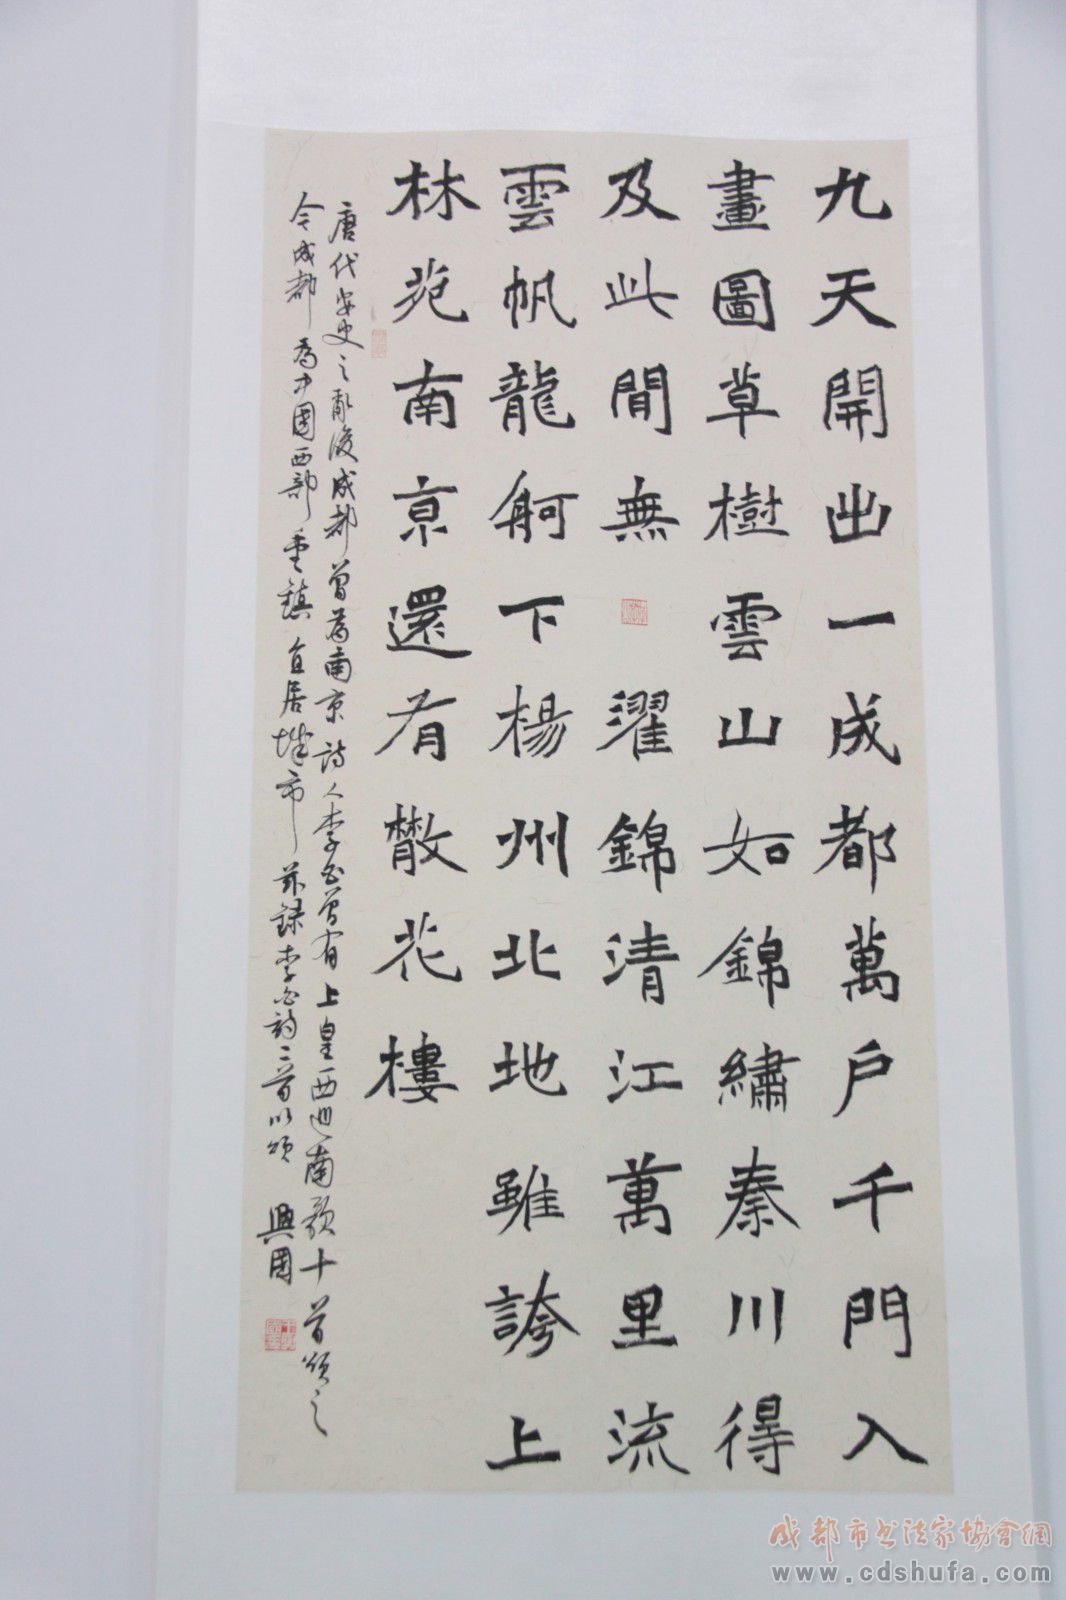 九天開出一成都萬戶千門入
畫圖草樹雲山如錦繡秦川得
及此間無 濯錦清江萬里流
雲帆龍舸下楊州北地雖誇上
林苑南京還有散花樓
唐代安史之亂後成都曾為南京詩人李白曾有上皇西巡南歌十首頌之
今成都為中國西部重鎮宜居城市茲錄李白詩二首以頌 興國
成都市书法家協會網
www.cdshufa.com